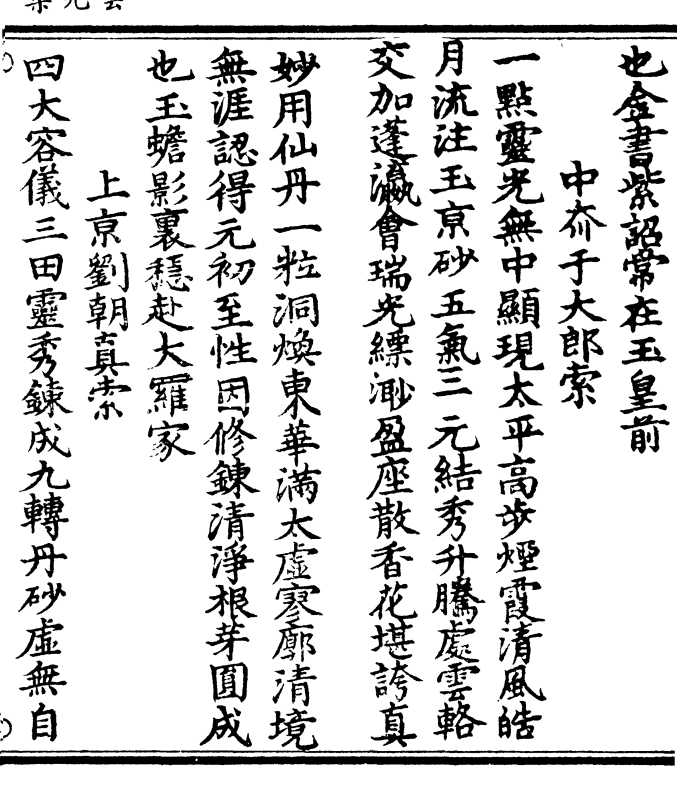 也金書紫詔常在玉皇前
中奈于大郎索
一點靈光無中顯現太平高步煙霞清風皓
月流注玉京砂五氣三元結秀升騰處雲輅
交加蓬瀛會瑞光縹渺盈座散香花堪誇真
妙用仙丹一粒洞煥東華滿太虛寥廓清境
無涯認得元初至性因修鍊清淨根芽圓成
也玉蟾影裏穩赴大羅家
上京劉朝真索
四大容儀三田靈秀鍊成九轉丹砂虛無自